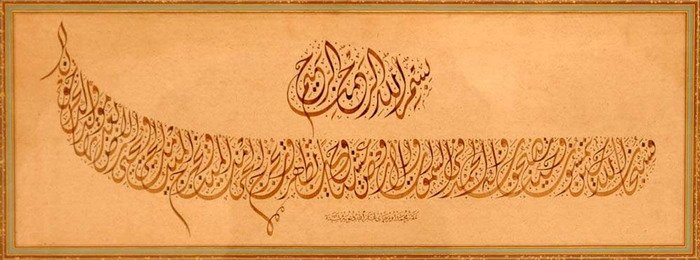 بسم الله الرحمن الرحيم
فسبحان الله حين تمسون وحين تصبحون وله الحمد في السموات والارض وعشيا وحين تظهرون يخرج الحي من الميت ويخرج الميت من الحي ويحيي الارض بعد موتها وكذلك تخرجون